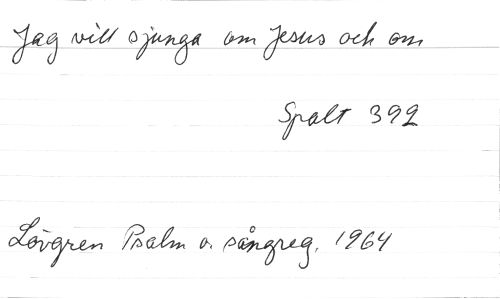 Jag vill sjunga om Jesus och om
Spalt 392
Lövgren Psalm o. sångreg. 1964